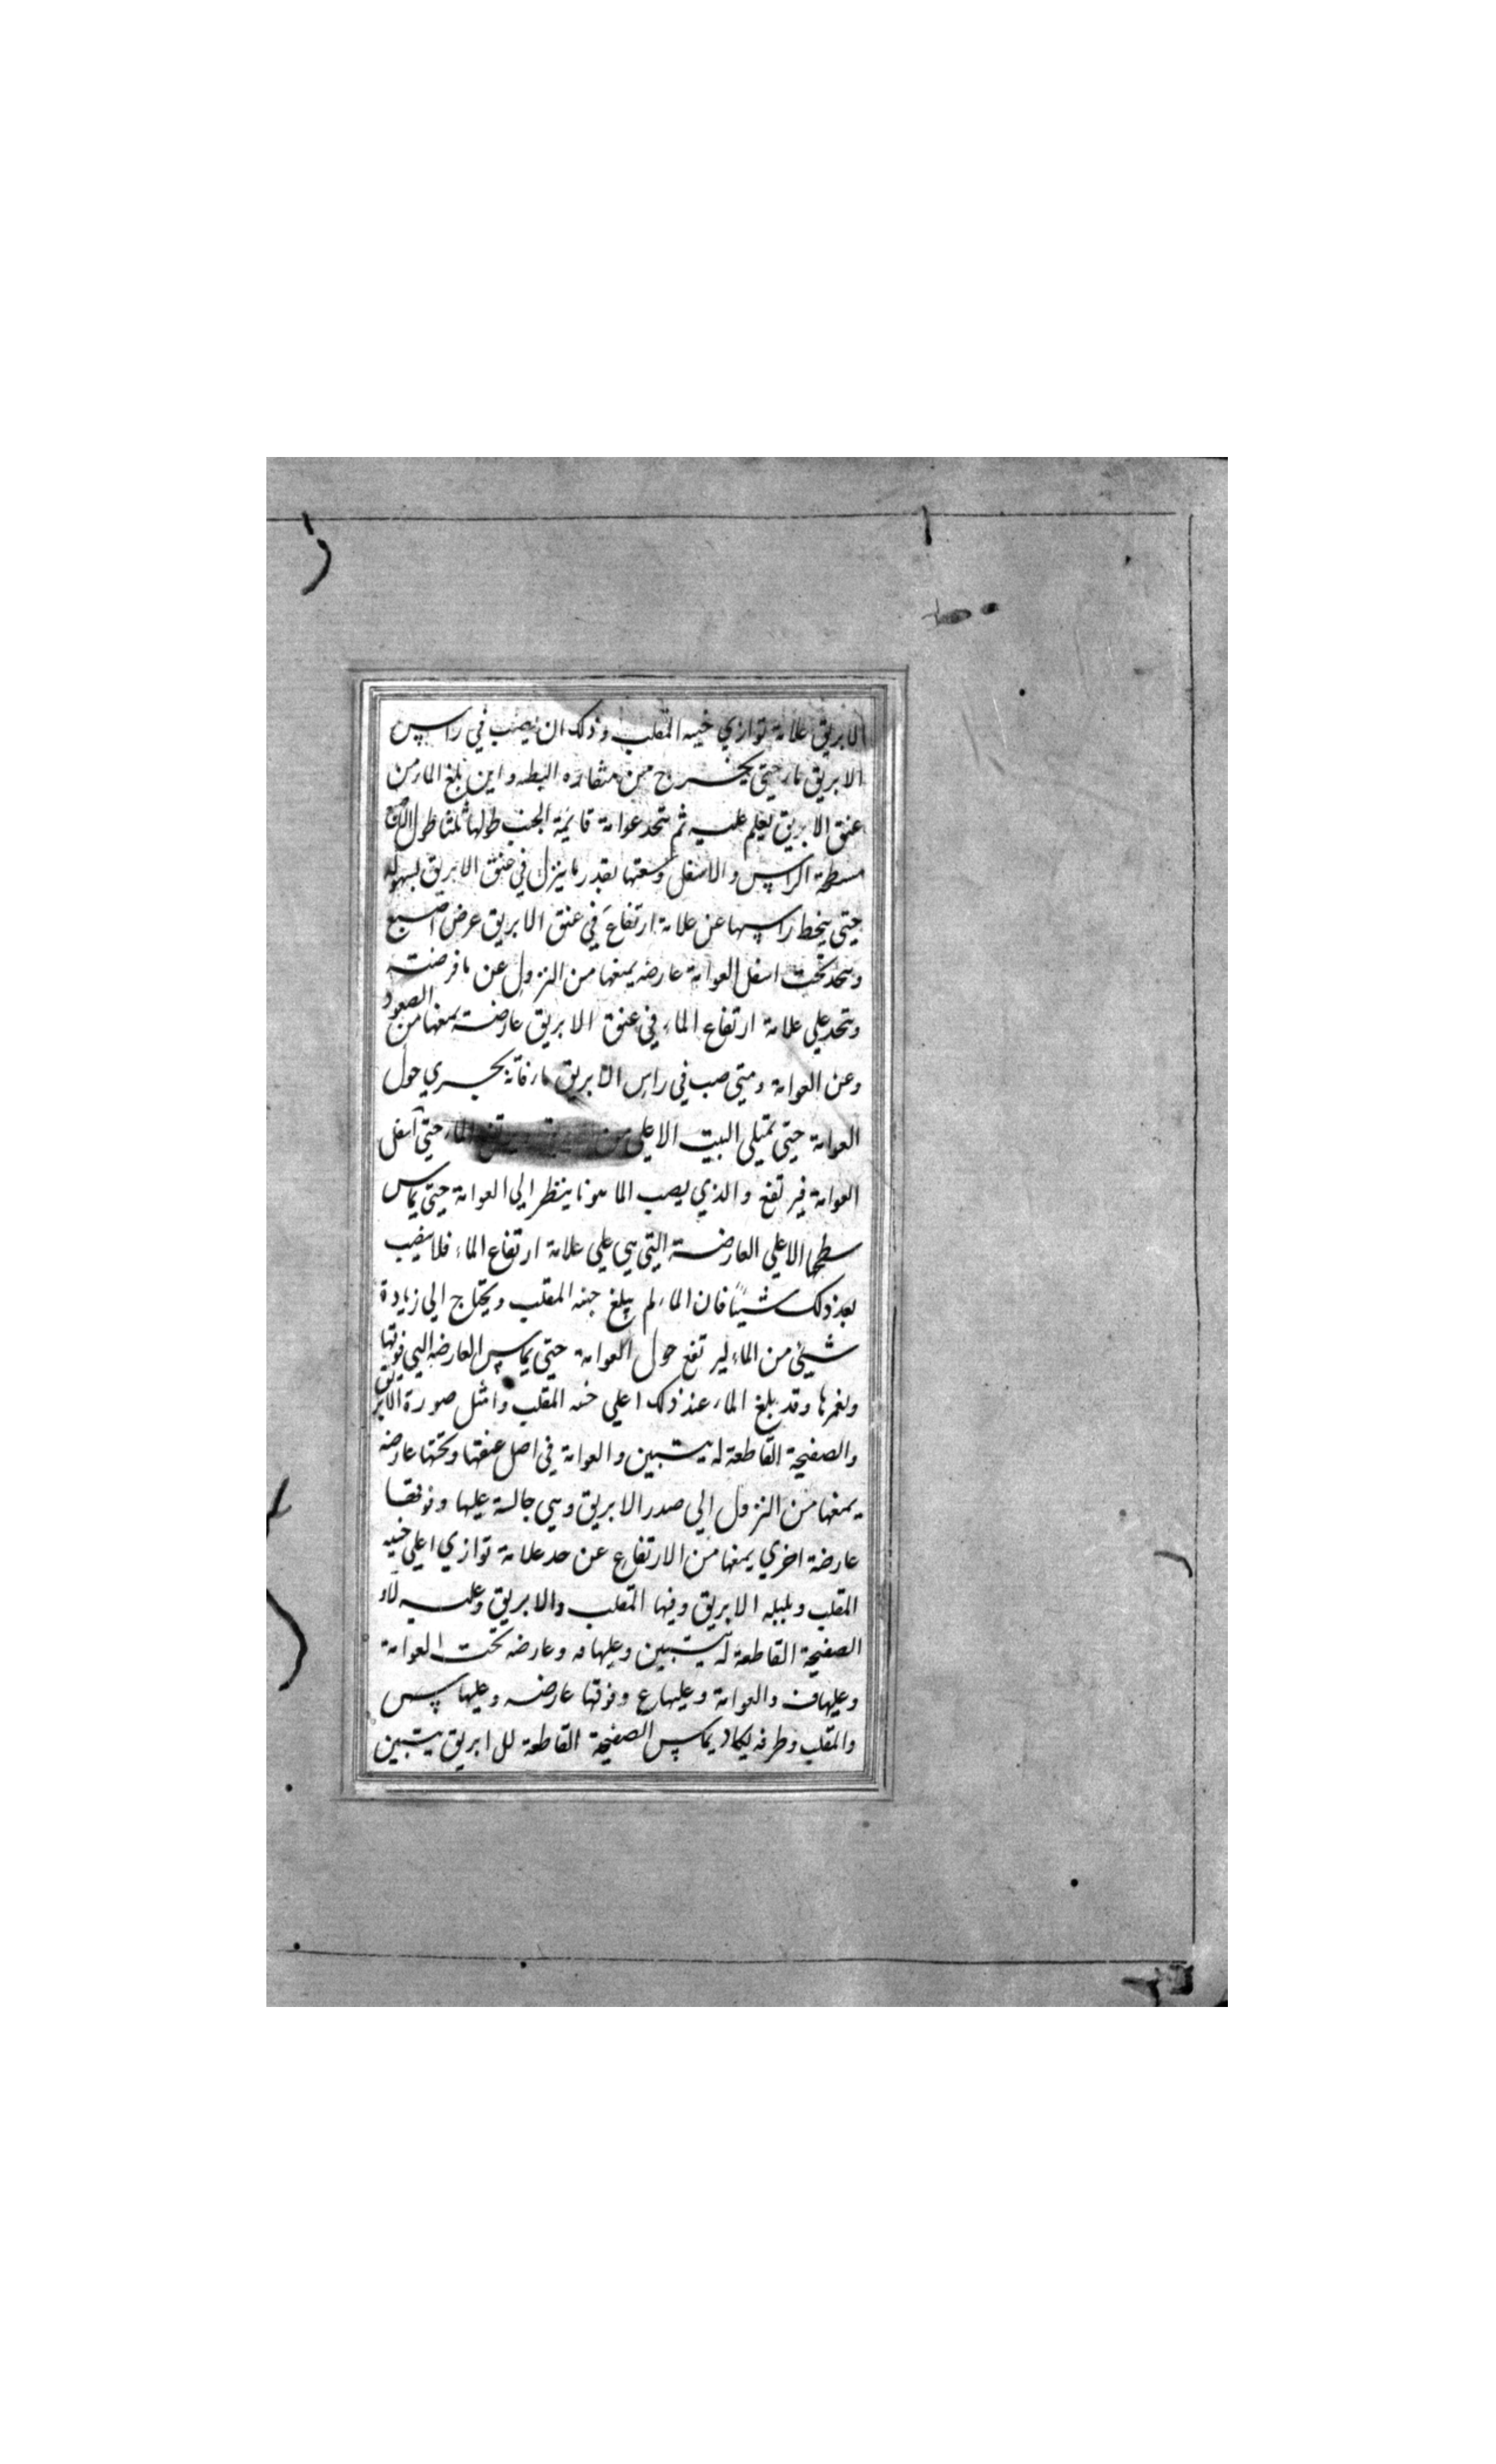 الابريق علامة توازي حنيه المقلب وذلك ان يصب في راس
الابريق ماء حتي يخرج من منقاره البطه واين بلغ الماء من
عنق الابريق يعلم عليه ثم يتحد عوامة قايمة الجنب طولها ثلثا طول
مسطحة الراس والاسفل وسعتها بقدر ما ينزل في عنق الابريق بسهوله
حتي ينحط راسها عن علامة ارتفاع في عنق الابريق عرض اصبع
ويتحد تحت اسفل العوامة عارضه يمنعها من النزول عن ما فرضته
ويتحد علي علامة ارتفاع الماء في عنق الابريق عارضة يمنعها من الصعود
وعن العوامة ومتي صب في راس الابريق ماء فانه يجري حول
العوامة حتي يمتلي البيت الاعلي من الماء حتي اسفل
العوامة فيرتفع والذي يصب الما هونا ينظر الي العوامة حتي يماس
سطحها الاعلي العارضة التي هي علي علامة ارتفاع الماء فلا يصب
بعد ذلك شيئا فان الماء لم يبلغ حنيه المقلب ويحتاج الي زيادة
شيئ من الماء ليرتفع حول العوامة حتي يماس العارضه التي فوقها
ويغمرها وقد بلغ الماء عند ذلك اعلي حنيه المقلب وامثل صورة الابريق
والصفيحة القاطعة له بيتين والعوامة في اصل عنقها وتحتها عارضه
يمنعها من النزول الي صدر الابريق وهي جالسة عليها وفوقها
عارضة اخري يمنعها من الارتفاع عن حد علامة توازي اعلي حنيه
المقلب وبلبله الابريق وفيها المقلب والابريق وعليه
الصفيحة القاطعة له بيتين وعليها مه وعارضه تحت العوامة
وعليها ف والعوامة وعليها ع وفوقها عارضه وعليها س
والمقلب وطرفه ليكاد يماس الصفيحة القاطعة للابريق بيتين